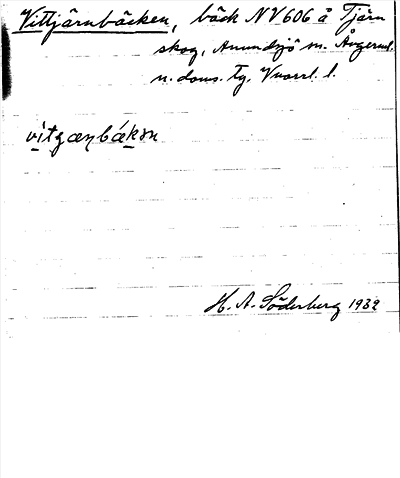 Vittjärnbäcken, bäck NV 606 å Tjärn
skog, Anundsjö sn. Ångerml.
n. doms. tg. Vnorrl. l.
vitʒænbäkən
H. A. Söderberg 1932